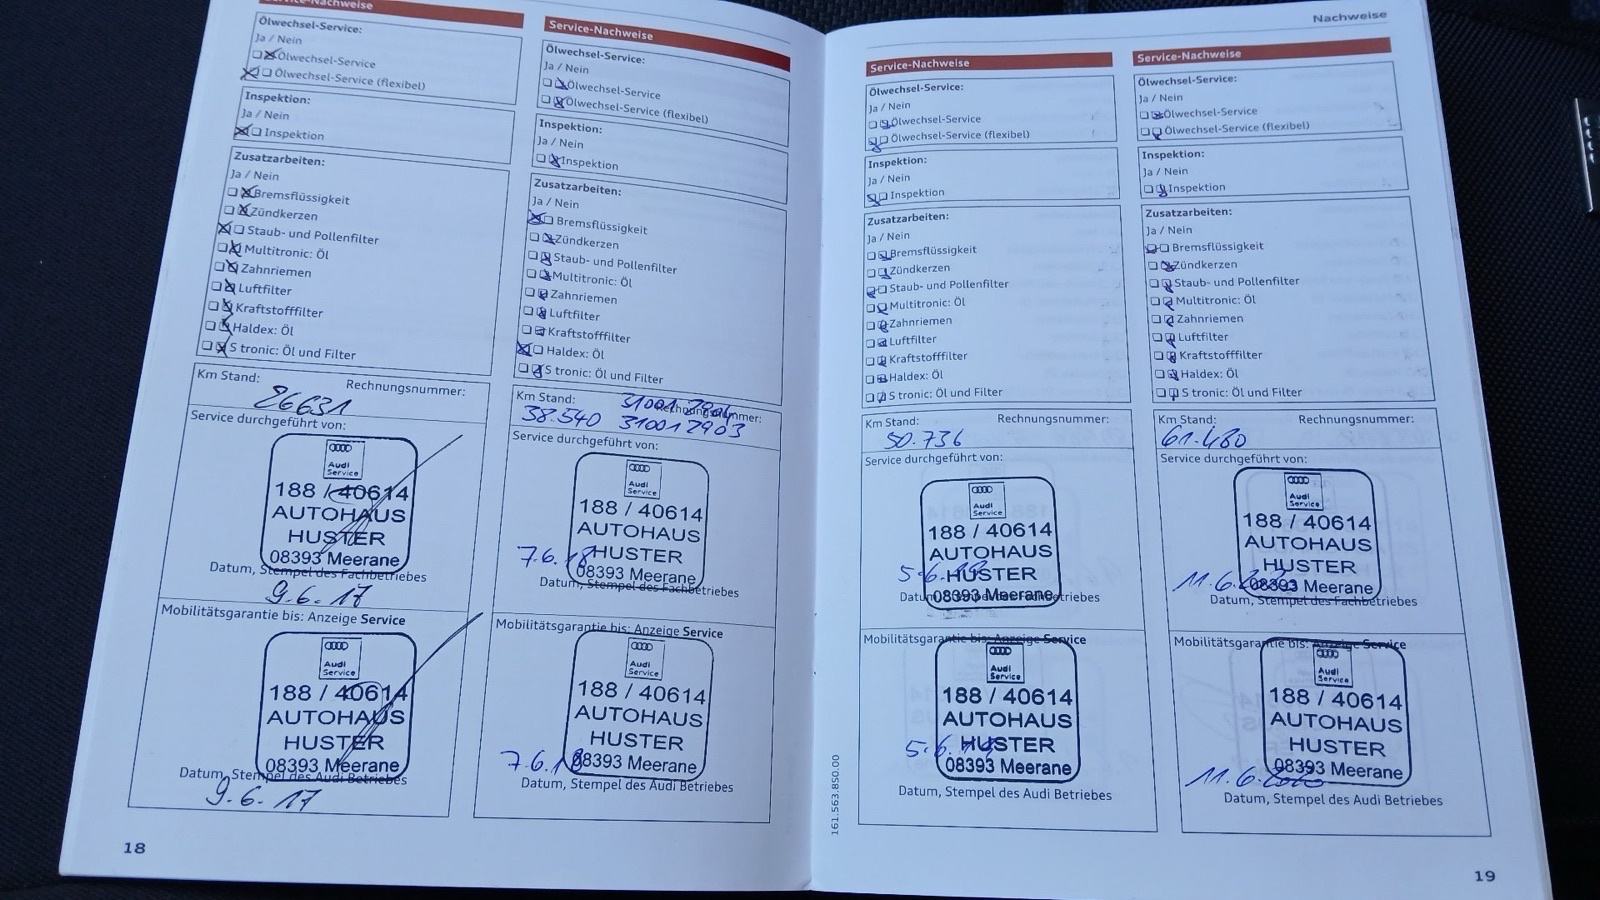 Service-Nachweise
Ölwechsel-Service:
Ja / Nein
Ölwechsel-Service
Ölwechsel-Service (flexibel)
Inspektion:
Ja / Nein
Inspektion
Zusatzarbeiten:
Ja / Nein
Bremsflüssigkeit
Zündkerzen
Staub- und Pollenfilter
Multitronic: Öl
Zahnriemen
Luftfilter
Kraftstofffilter
Haldex: Öl
S tronic: Öl und Filter
Km Stand: Rechnungsnummer:
26631
Service durchgeführt von:
Audi
Service
188 / 40614
AUTOHAUS
HUSTER
08393 Meerane
Datum, Stempel des Fachbetriebes
9.6.17
Mobilitätsgarantie bis: Anzeige Service
Audi
Service
188 / 40614
AUTOHAUS
HUSTER
08393 Meerane
Datum, Stempel des Audi Betriebes
9.6.17
18
Service-Nachweise
Ölwechsel-Service:
Ja / Nein
Ölwechsel-Service
Ölwechsel-Service (flexibel)
Inspektion:
Ja / Nein
Inspektion
Zusatzarbeiten:
Ja / Nein
Bremsflüssigkeit
Zündkerzen
Staub- und Pollenfilter
Multitronic: Öl
Zahnriemen
Luftfilter
Kraftstofffilter
Haldex: Öl
S tronic: Öl und Filter
Km Stand: Rechnungsnummer:
38.540 310012903
Service durchgeführt von:
Audi
Service
188 / 40614
AUTOHAUS
HUSTER
08393 Meerane
7.6.18
Datum, Stempel des Fachbetriebes
Mobilitätsgarantie bis: Anzeige Service
Audi
Service
188 / 40614
AUTOHAUS
HUSTER
08393 Meerane
7.6.18
Datum, Stempel des Audi Betriebes
Nachweise
Service-Nachweise
Ölwechsel-Service:
Ja / Nein
Ölwechsel-Service
Ölwechsel-Service (flexibel)
Inspektion:
Ja / Nein
Inspektion
Zusatzarbeiten:
Ja / Nein
Bremsflüssigkeit
Zündkerzen
Staub- und Pollenfilter
Multitronic: Öl
Zahnriemen
Luftfilter
Kraftstofffilter
Haldex: Öl
S tronic: Öl und Filter
Km Stand: Rechnungsnummer:
50.736
Service durchgeführt von:
Audi
Service
188 / 40614
AUTOHAUS
HUSTER
08393 Meerane
5.6.19
Datum, Stempel des Fachbetriebes
Mobilitätsgarantie bis: Anzeige Service
Audi
Service
188 / 40614
AUTOHAUS
HUSTER
08393 Meerane
5.6.19
Datum, Stempel des Audi Betriebes
161.563.850.00
Service-Nachweise
Ölwechsel-Service:
Ja / Nein
Ölwechsel-Service
Ölwechsel-Service (flexibel)
Inspektion:
Ja / Nein
Inspektion
Zusatzarbeiten:
Ja / Nein
Bremsflüssigkeit
Zündkerzen
Staub- und Pollenfilter
Multitronic: Öl
Zahnriemen
Luftfilter
Kraftstofffilter
Haldex: Öl
S tronic: Öl und Filter
Km Stand: Rechnungsnummer:
61.480
Service durchgeführt von:
Audi
Service
188 / 40614
AUTOHAUS
HUSTER
08393 Meerane
11.6.2020
Datum, Stempel des Fachbetriebes
Mobilitätsgarantie bis: Anzeige Service
Audi
Service
188 / 40614
AUTOHAUS
HUSTER
08393 Meerane
11.6.2020
Datum, Stempel des Audi Betriebes
19